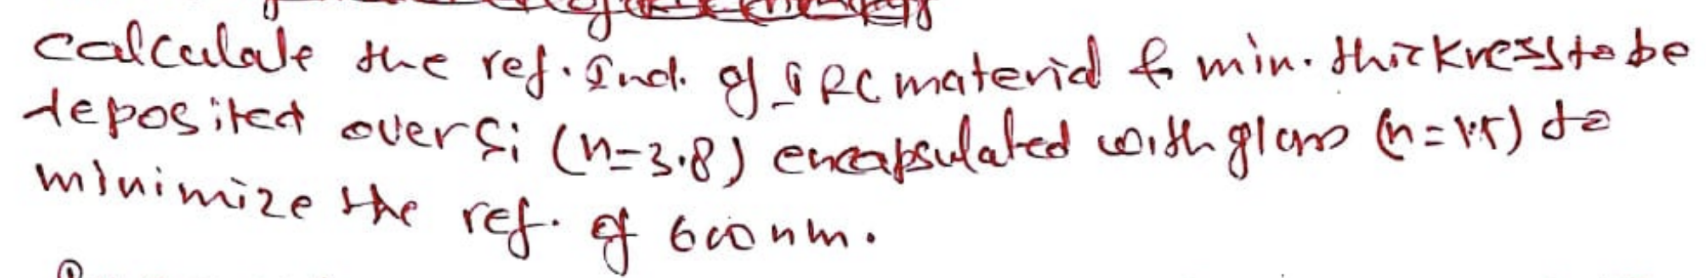 calculate the ref. Ind. of ARC material & min. thickness to be
deposited over Si (n=3.8) encapsulated with glass (n=1.5) to
minimize the ref. of 600nm.